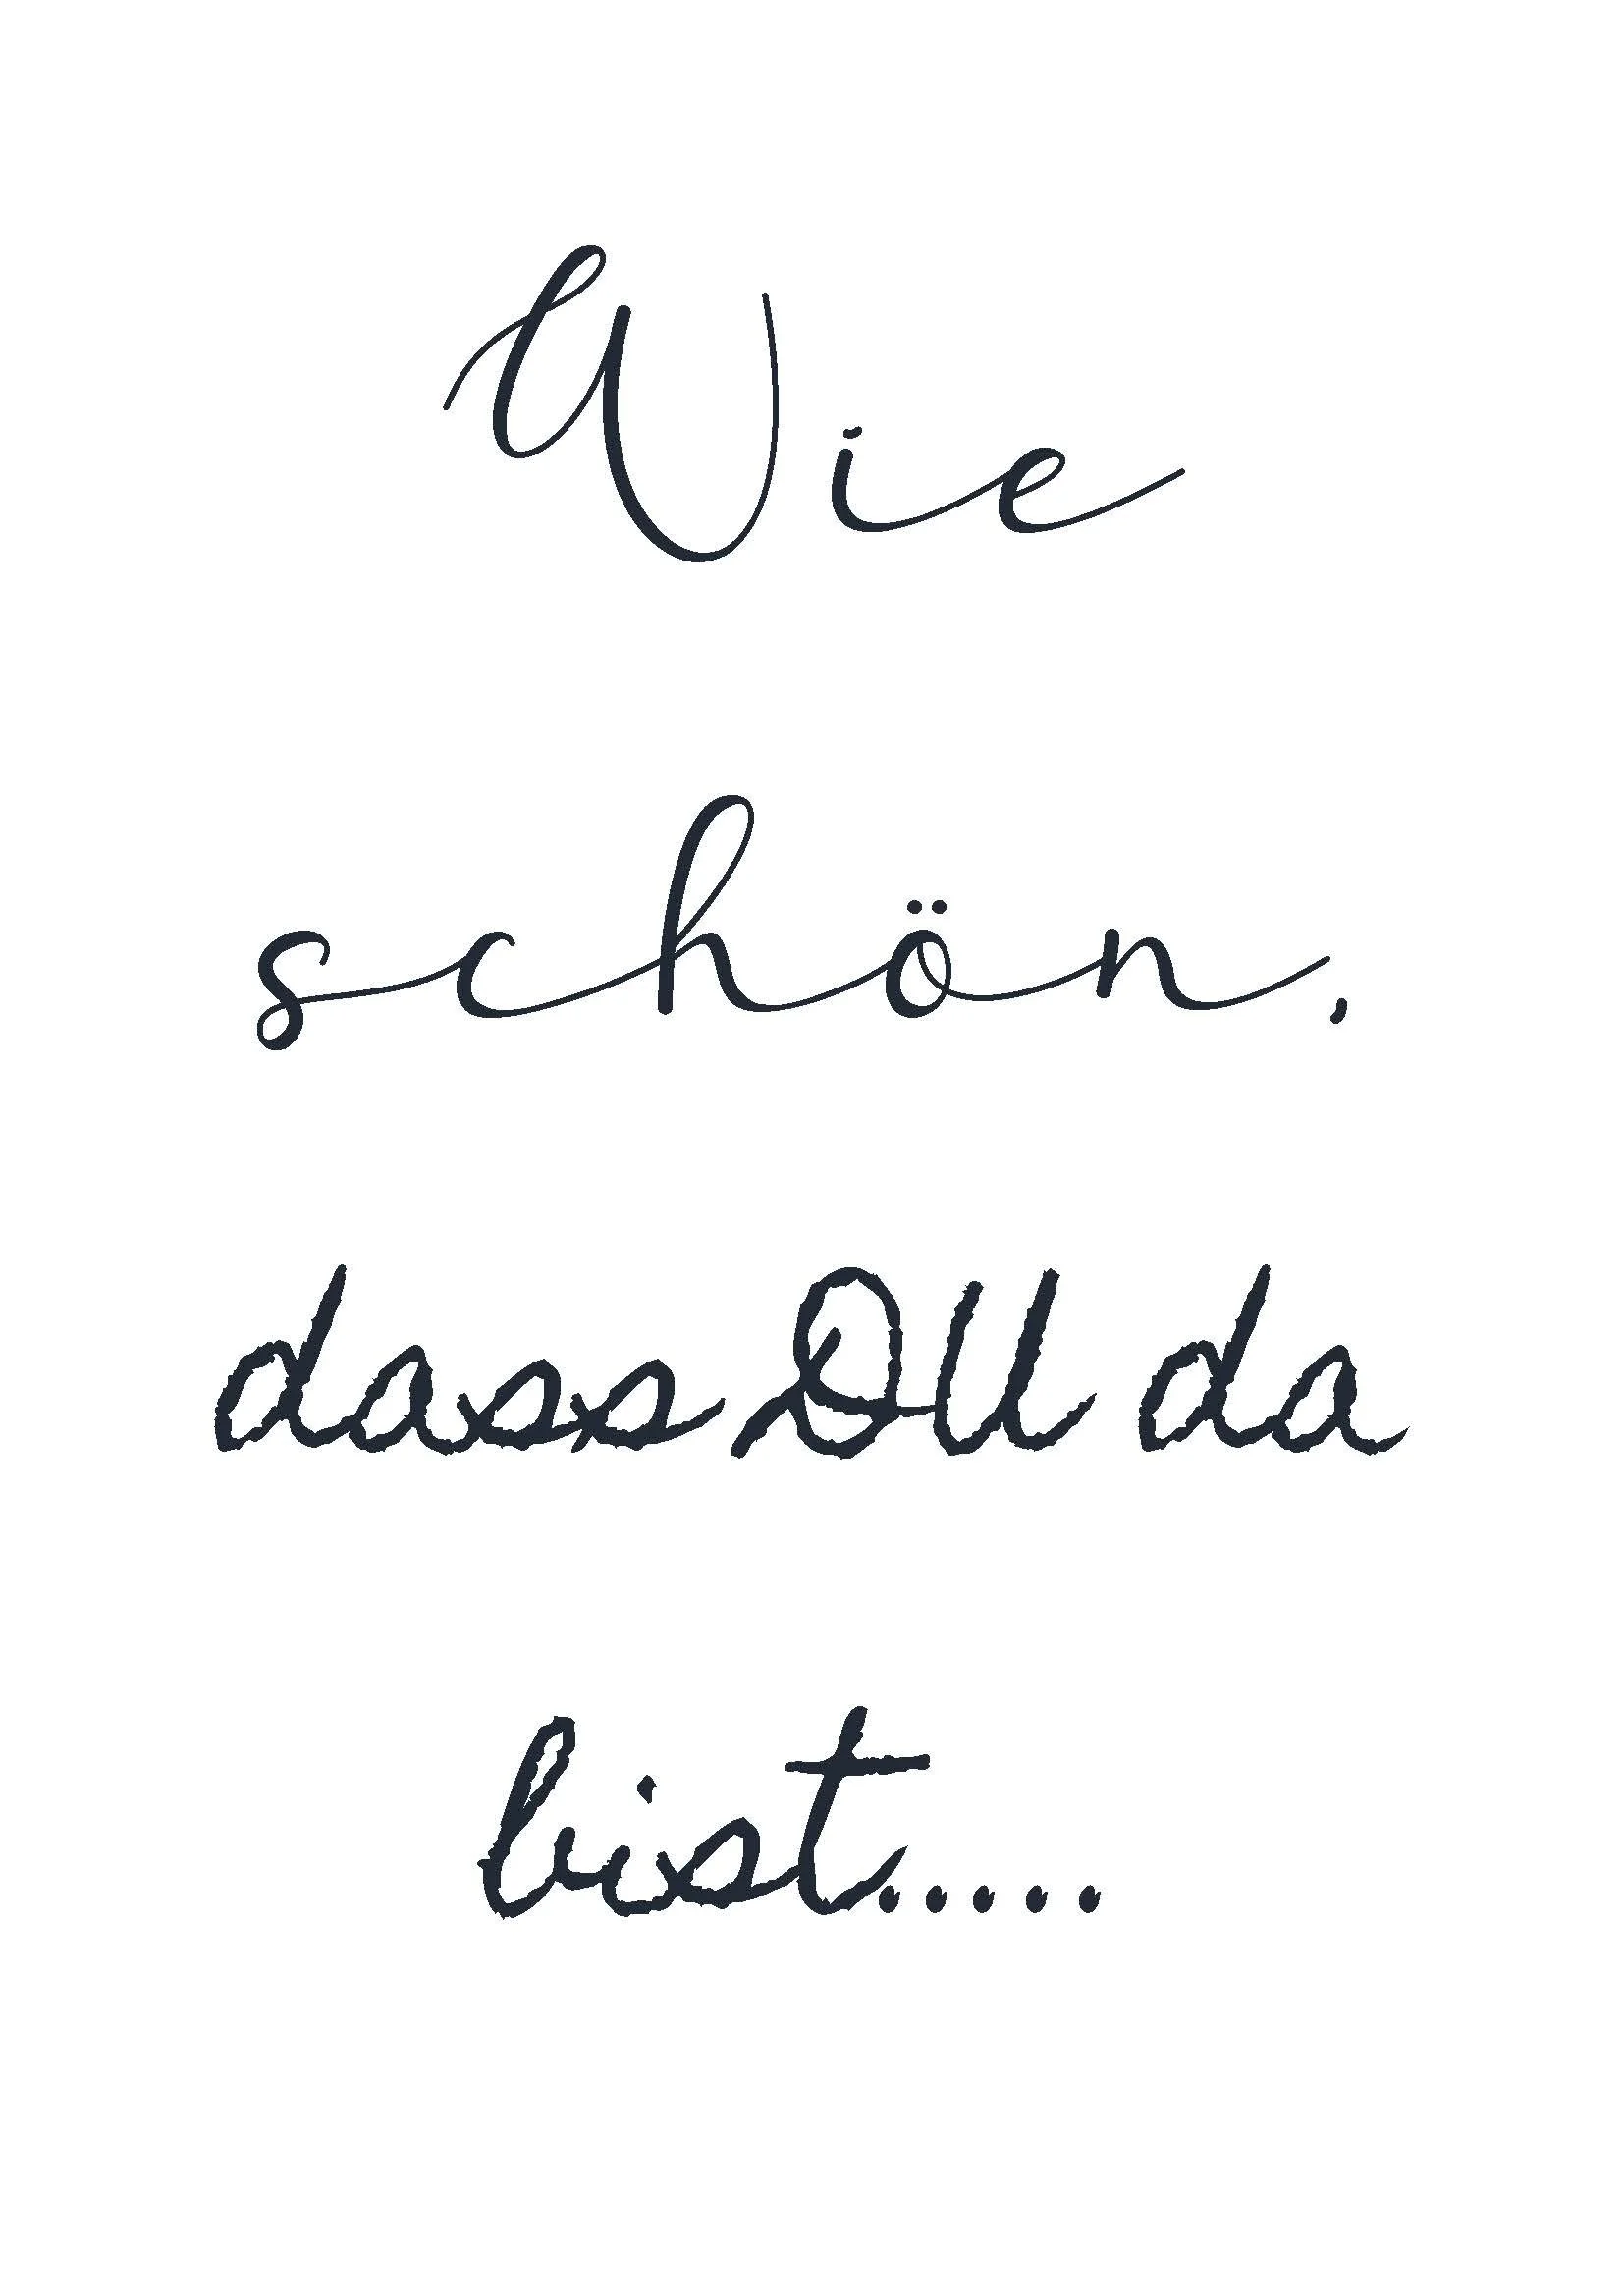 Wie
schön,
dass DU da
bist.....